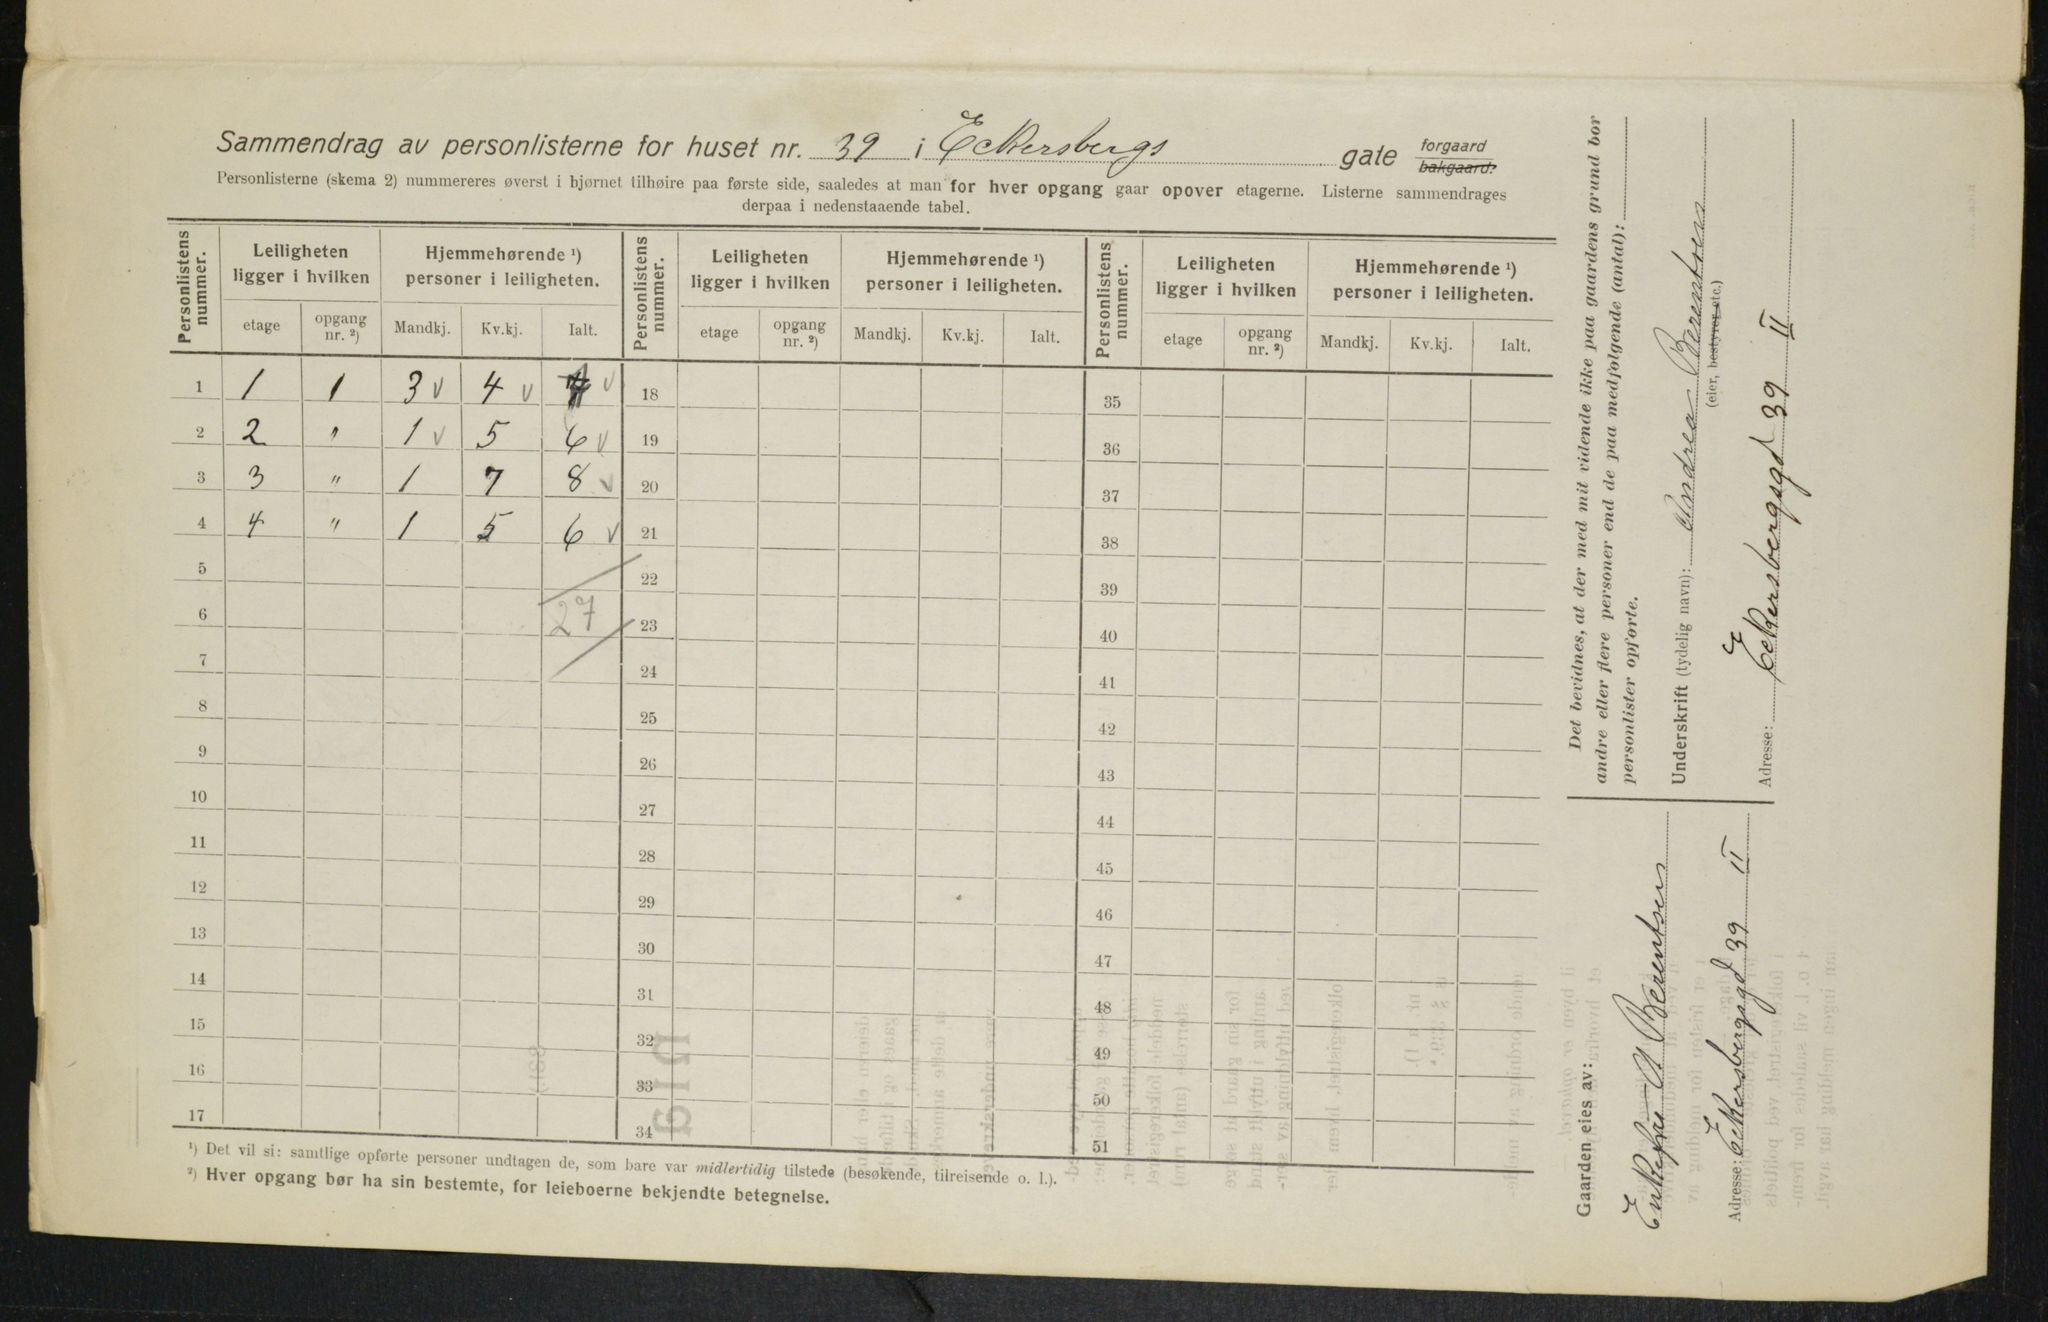 Sammendrag av personlisterne for huset nr. 39 i Eckersbergs gate forgaard bakgaard.
Personlisterne (skema 2) nummereres øverst i hjørnet tilhøire paa første side, saaledes at man for hver opgang gaar opover etagerne. Listerne sammendrages
derpaa i nedenstaaende tabel.
Personlistens nummer. Leiligheten ligger i hvilken Hjemmehørende ¹) personer i leiligheten. Personlistens nummer. Leiligheten ligger i hvilken Hjemmehørende ¹) personer i leiligheten. Personlistens nummer. Leiligheten ligger i hvilken Hjemmehørende ¹) personer i leiligheten.
etage opgang nr. ²) Mandkj. Kv.kj. Ialt. etage opgang nr. ²) Mandkj. Kv.kj. Ialt. etage opgang nr. ²) Mandkj. Kv.kj. Ialt.
1 1 1 3 v 4 v 7 v 18 35
2 2 " 1 v 5 6 v 19 36
3 3 " 1 7 8 v 20 37
4 4 " 1 5 6 v 21 38
5 22 39
6 27 23 40
7 24 41
8 25 42
9 26 43
10 27 44
11 28 45
12 29 46
13 30 47
14 31 48
15 32 49
16 33 50
17 34 51
¹) Det vil si: samtlige opførte personer undtagen de, som bare var midlertidig tilstede (besøkende, tilreisende o. l.).
²) Hver opgang bør ha sin bestemte, for leieboerne bekjendte betegnelse.
Det bevidnes, at der med mit vidende ikke paa gaardens grund bor
andre eller flere personer end de paa medfølgende (antal):
personlister opførte.
Underskrift (tydelig navn): Andrea Berentsen
(eier, bestyrer etc.)
Adresse: Eckersbergsgd 39 II
Gaarden eies av:
Enkefru A Berentsen
Adresse: Eckersbergsgd 39 II